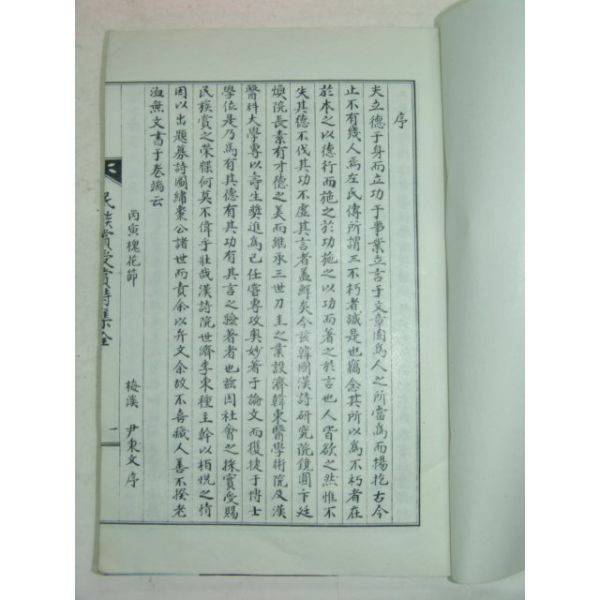 序
夫立德于身而立功于事業立言于文章固爲人之所當爲而揚扢古今
止不有幾人焉左氏傳所謂三不朽者誠是也竊念其所以爲不朽者在
於本之以德行而施之於功施之以功而著之於言也人皆欲之然惟不
失其德不伐其功不虛其言者蓋鮮矣今該韓國漢詩研究院鏡圃卞廷
煥院長素有才德之美而繼承三世刀圭之業設濟韓東醫學術院及漢
醫科大學專以壽生獎進爲己任嘗專攻奧妙著于論文而獲捷于博士
學位是乃爲有其德有其功有其言之驗著者也玆因社會之採實受賜
民族賞之榮襮何莫不偉乎壯哉漢詩院世濟李東種主幹以栢悅之情
因以出題募詩圖繡棗公諸世而責余以弁文余故不喜藏人善不揆老
洫無文書于卷端云
丙寅槐花節
梅溪 尹秉文 序
民族賞受賞詩集全
一